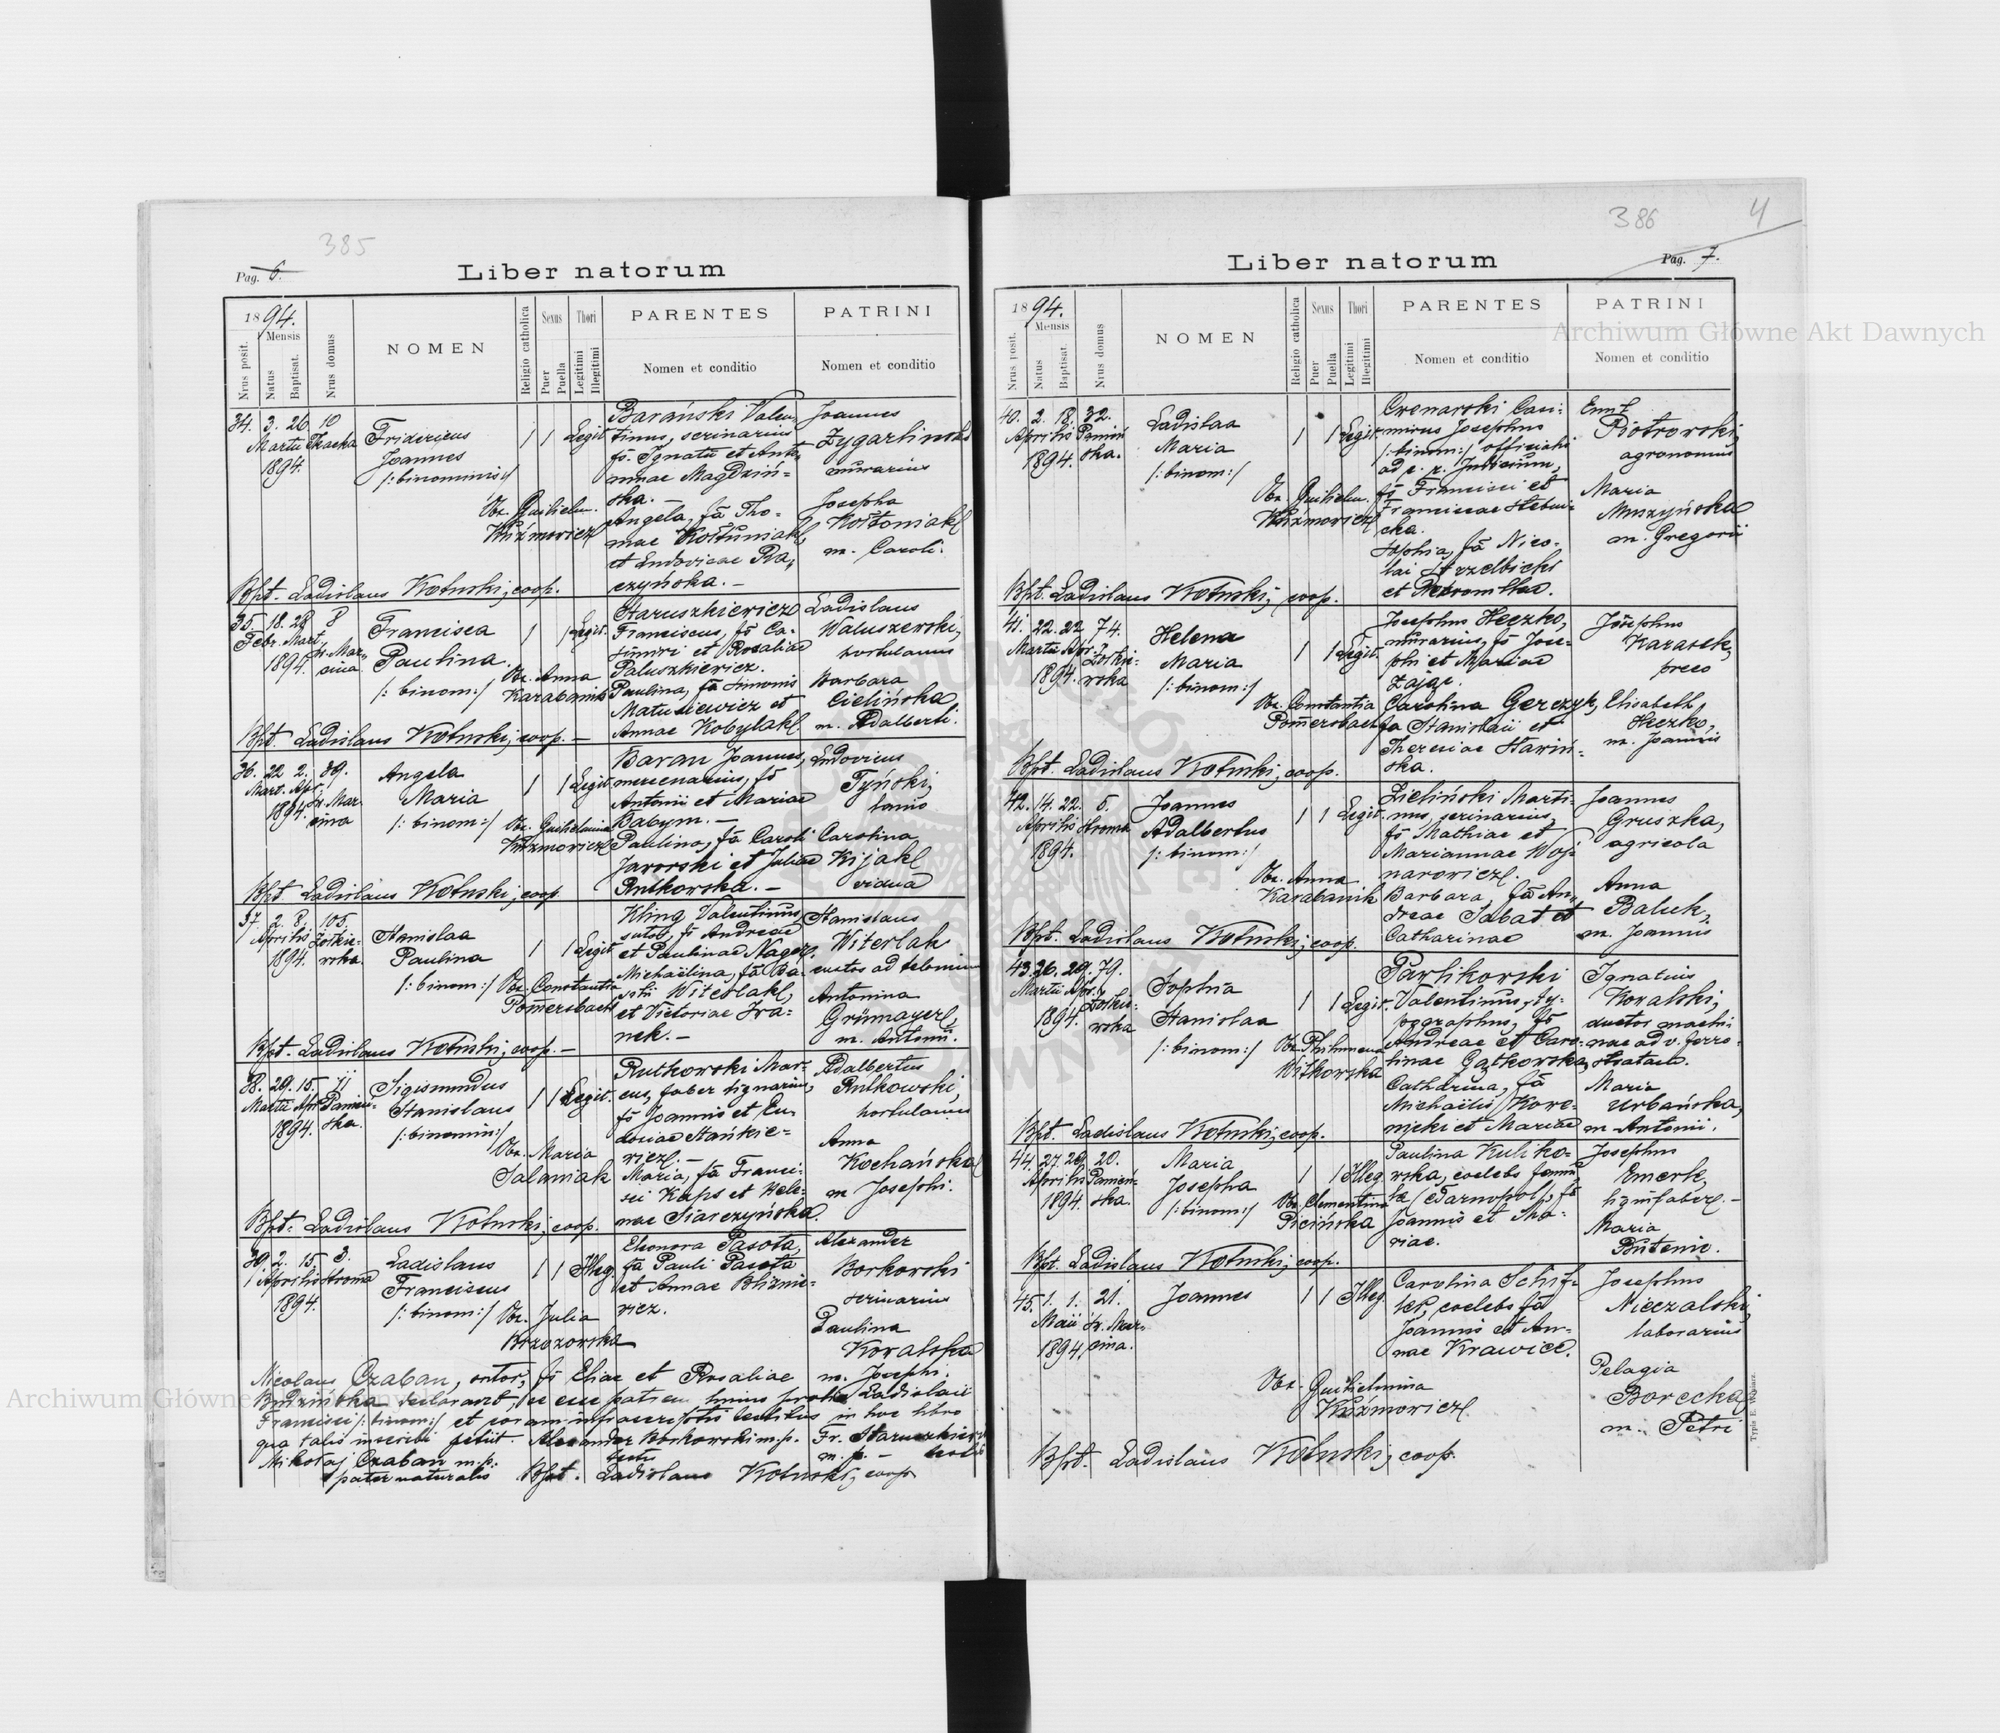 385
Pag. 6.
Liber natorum
1894.
Mensis
Nrus posit.
Natus
Baptisat.
Nrus domus
NOMEN
Religio catholica
Sexus
Puer
Puella
Thori
Legitimi
Illegitimi
PARENTES
Nomen et conditio
PATRINI
Nomen et conditio
34. 3. 26. 10
Martii Tkacka
1894.
Fridericus
Joannes
/: binominis :/
Obs. Guilielm.
Kuźmowicz
1 1 Legit.
Barański Valen-
tinus, scrinarius
fs. Ignatii et Anto-
ninae Magdziń-
ska. —
Angela, fa Tho-
mae Kołtuniak
et Ludovicae Ra-
czyńska. —
Joannes
Zygarlinski
murarius
Josepha
Kołtoniak
m. Caroli.
Bpt. Ladislaus Kotuski, coop.
35. 18. 28. 8
Febr. Mart. Sr. Mar-
1894. cina
Francisca
Paulina.
/: binom :/
Obs. Anna
Karabanik
1 1 Legit.
Staruszkiewicz
Franciscus, fs Ca-
simiri et Rosaliae
Paluszkiewicz.
Paulina, fa Simonis
Matusiewicz et
Annae Kobylak.
Ladislaus
Waluszewski,
hortulanus
Barbara
Cielińska
m. Adalberti.
Bpt. Ladislaus Kotuski, coop. —
36. 22. 2. 39.
Mart. Apr. Sr. Mar-
1894. cina
Angela
Maria
/: binom :/
Obs. Guilielmina
Kuźmowicz
1 1 Legit.
Baran Joannes,
mercenarius, fs
Antonii et Mariae
Babym. —
Paulina, fa Caroli
Jaworski et Juliae
Rutkowska. —
Ludovicus
Tyński,
lanio
Carolina
Kijak
vidua
Bpt. Ladislaus Kotuski, coop.
37. 2. 8. 105.
Aprilis Żółkie-
1894. wska.
Stanislaa
Paulina
/: binom :/
Obs. Constantia
Pomersbach
1 1 Legit.
Kling Valentinus
sutor, fs Andreae
et Paulinae Nagez.
Michaëlina, fa Ba-
silii Witerlak,
et Victoriae Ira-
nek. —
Stanislaus
Witerlak
custos ad telonium
Antonina
Grünmayer,
m. Antonii.
Bpt. Ladislaus Kotuski, coop. —
38. 29. 15. 11
Martii Apr. Panień-
1894. ska.
Sigismundus
Stanislaus
/: binomin :/
Obs. Maria
Salamiak
1 1 Legit.
Rutkowski Mar-
cus, faber lignarius,
fs Joannis et Eu-
dociae Stańkie-
wicz. —
Maria, fa Franci-
sci Kaps et Hele-
nae Siarczyńska.
Adalbertus
Rutkowski,
hortulanus
Anna
Kochańska
m Josephi.
Bpt. Ladislaus Kotuski, coop.
39. 2. 15. 3.
Aprilis Stroma
1894.
Ladislaus
Franciscus
/: binom :/ Obs. Julia
Brzozowska
1 1 Illeg.
Eleonora Pasota,
fa Pauli Pasota
et Annae Bliznie-
wicz.
Alexander
Borkowski
scrinarius
Paulina
Kowalska
m. Josephi.
Nicolaus Czaban, sutor, fs Eliae et Rosaliae
Budzińska declaravit, se esse patrem hujus prolis Ladislaii
Francisci /: binom :/ et coram infrascriptis testibus in hoc libro
qua talis inscribi petiit. Alexander Borkowski m.p. Fr. Staruszkiewicz
Mikołaj Czaban m.p. testis m.p. — testis
pater naturalis Bpt. Ladislaus Kotuski, coop.
386
4
Pag. 7.
Liber natorum
1894.
Mensis
Nrus posit.
Natus
Baptisat.
Nrus domus
NOMEN
Religio catholica
Sexus
Puer
Puella
Thori
Legitimi
Illegitimi
PARENTES
Nomen et conditio
PATRINI
Nomen et conditio
40. 2. 18. 32.
Aprilis Panień-
1894. ska.
Ladislaa
Maria
/: binom :/
Obs. Guilielm.
Kuźmowicz
1 1 Legit.
Cronarski Casi-
mirus Josephus
/: binom :/ officialis
ad c. r. Judicium,
fs Francisci et
Franciscae Stebni-
cka.
Sophia, fa Nico-
lai Strzelbicki
et
Ernst
Piotrowski,
agronomus
Maria
Muszyńska
m. Gregorii
Bpt. Ladislaus Kotuski, coop.
41. 22. 22. 74.
Martii Apr. Żółkie-
1894. wska
Helena
Maria
/: binom :/
Obs. Constantia
Pomersbach
1 1 Legit.
Josephus Heczko,
murarius, fs Jose-
phi et Mariae
Zając.
Carolina Gerczyk,
fa Stanislaii et
Theresiae Stariń-
ska.
Josephus
Karasek,
preco
Elisabeth
Heczko,
m. Joannis
Bpt. Ladislaus Kotuski, coop.
42. 14. 22. 5.
Aprilis Stroma
1894.
Joannes
Adalbertus
/: binom :/
Obs. Anna
Karabanik
1 1 Legit.
Zieliński Marti-
nus, scrinarius,
fs Mathiae et
Mariannae Woj-
narowicz.
Barbara, fa An-
dreae Sabat et
Catharinae
Joannes
Gruszka,
agricola
Anna
Baluk,
m. Joannis
Bpt. Ladislaus Kotuski, coop.
43. 26. 29. 79.
Martii Apr. Żółkie-
1894. wska
Sophia
Stanislaa
/: binom :/
Obs. Philomena
Witkowska
1 1 Legit.
Pawlikowski
Valentinus, ty-
pographus, fs
Andreae et Caro-
linae Gątkowska,
Catharina, fa
Michaëlis Korc-
nicki et Mariae
Ignatius
Kowalski,
ductor machi-
nae ad v. ferro-
stratam.
Maria
Urbańska,
m Antonii.
Bpt. Ladislaus Kotuski, coop.
44. 27. 29. 20.
Aprilis Panień-
1894. ska.
Maria
Josepha
/: binom :/
Obs. Clementina
Picińska
1 1 Illeg.
Paulina Kuliko-
wska, coelebs famu-
la (Tarnopol), fa
Joannis et Ma-
riae.
Josephus
Emerk,
lignifaber. —
Maria
Butenic.
Bpt. Ladislaus Kotuski, coop.
45. 1. 1. 21.
Maii Sr. Mar-
1894. cina.
Joannes
Obs. Guilielmina
Kuźmowicz
1 1 Illeg.
Carolina Schif-
ter, coelebs fa
Joannis et An-
nae Krawiec.
Josephus
Nieczalski,
laborarius
Pelagia
Borecka
m. Petri
Bpt. Ladislaus Kotuski, coop.
Archiwum Główne Akt Dawnych